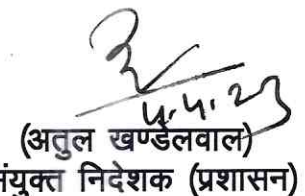 4.4.23
(अतुल खण्डेलवाल)
संयुक्त निदेशक (प्रशासन)